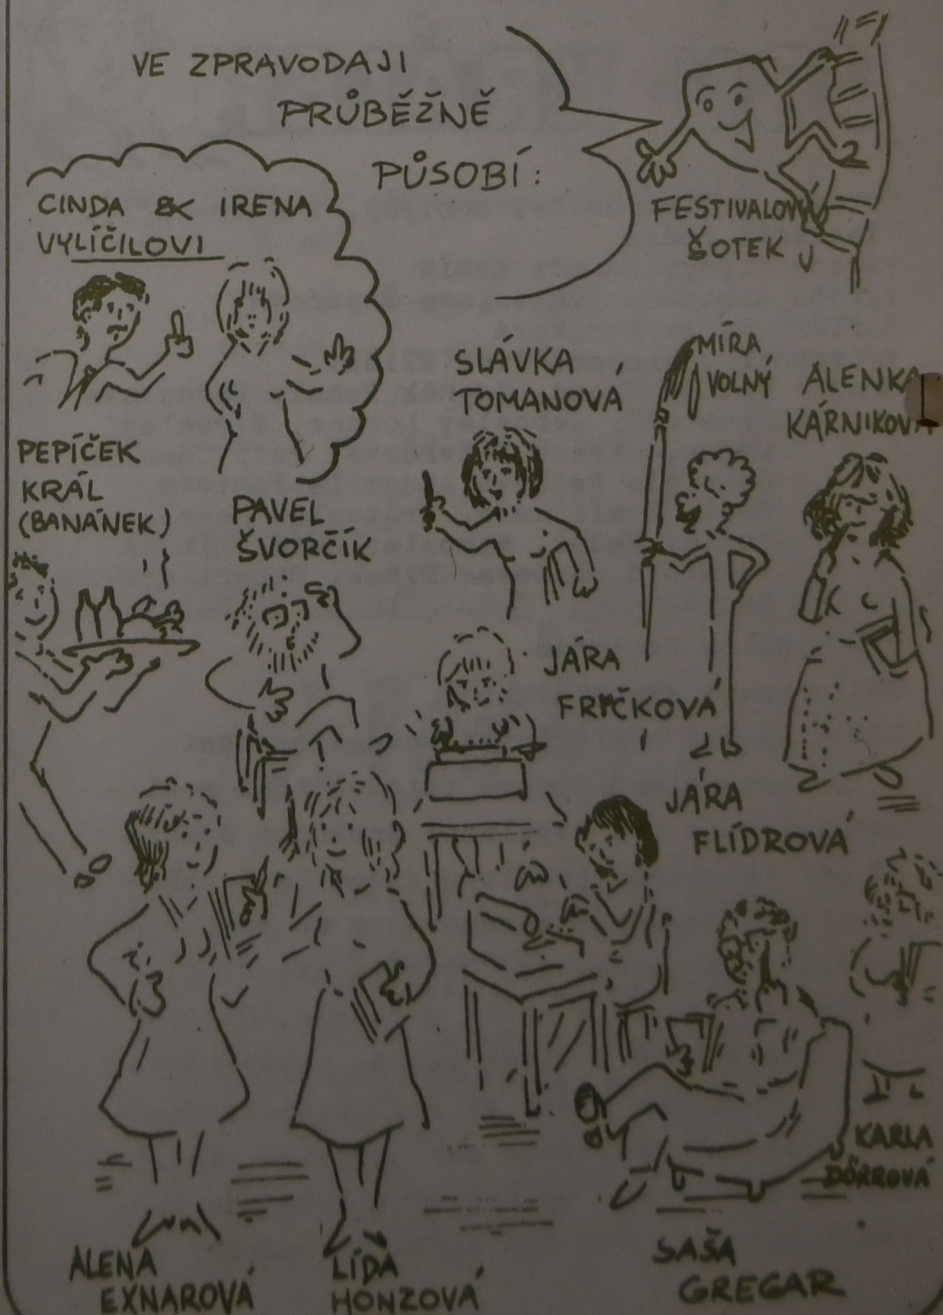 VE ZPRAVODAJI
PRŮBĚŽNĚ
PŮSOBÍ:
FESTIVALOVÝ
ŠOTEK
CINDA & IRENA
VYLÍČILOVI
SLÁVKA
TOMANOVÁ
MÍRA
VOLNÝ
ALENKA
KÁRNIKOVÁ
PEPÍČEK
KRÁL
(BANÁNEK)
PAVEL
ŠVORČÍK
JÁRA
FRIČKOVÁ
JÁRA
FLÍDROVÁ
KARLA
DÖRROVÁ
ALENA
EXNAROVÁ
LÍDA
HONZOVÁ
SAŠA
GREGAR